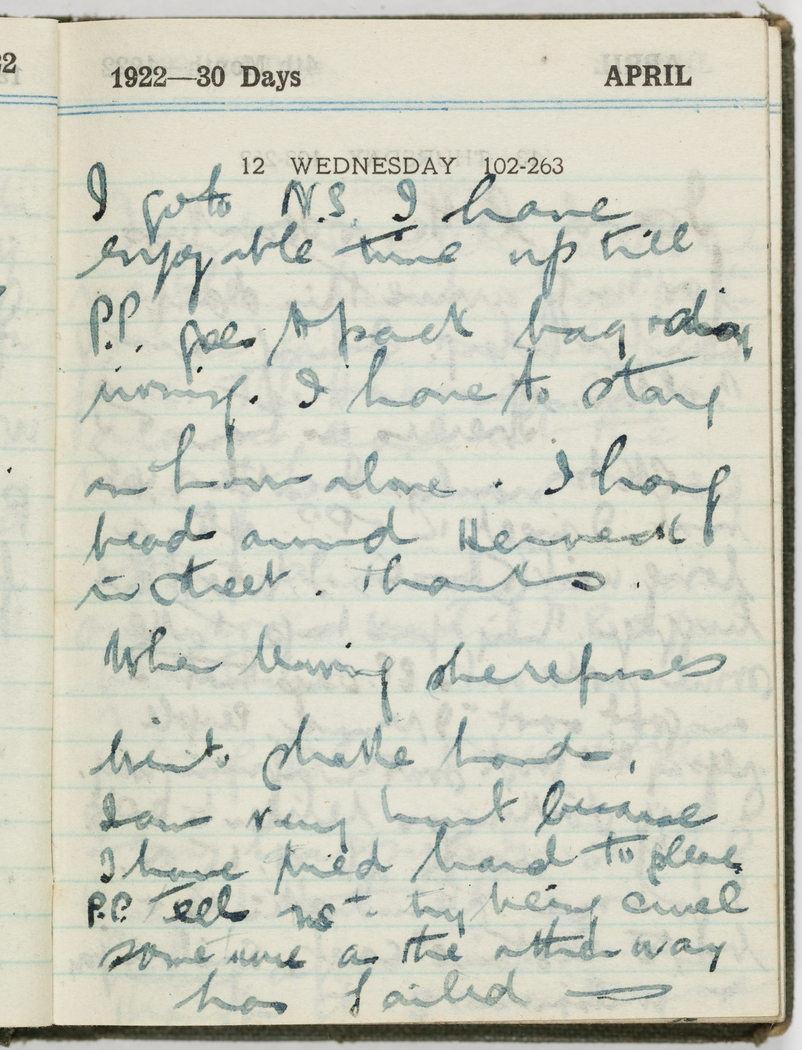 1922—30 Days APRIL
12 WEDNESDAY 102-263
I go to N.S. I have
enjoyable time up till
P.P. goes to pack bag + do
ironing. I have to stay
an hour alone. I hang
head around
in street. Thanks.
When leaving she refuses
to shake hands.
I am very hurt because
I have tried hard to please
P.P. try being cruel
sometime as the other way
has failed —